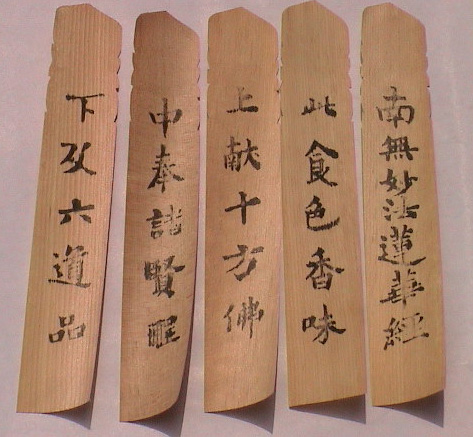 南無妙法蓮華經
此食色香味
上献十方佛
中奉諸賢聖
下及六道品